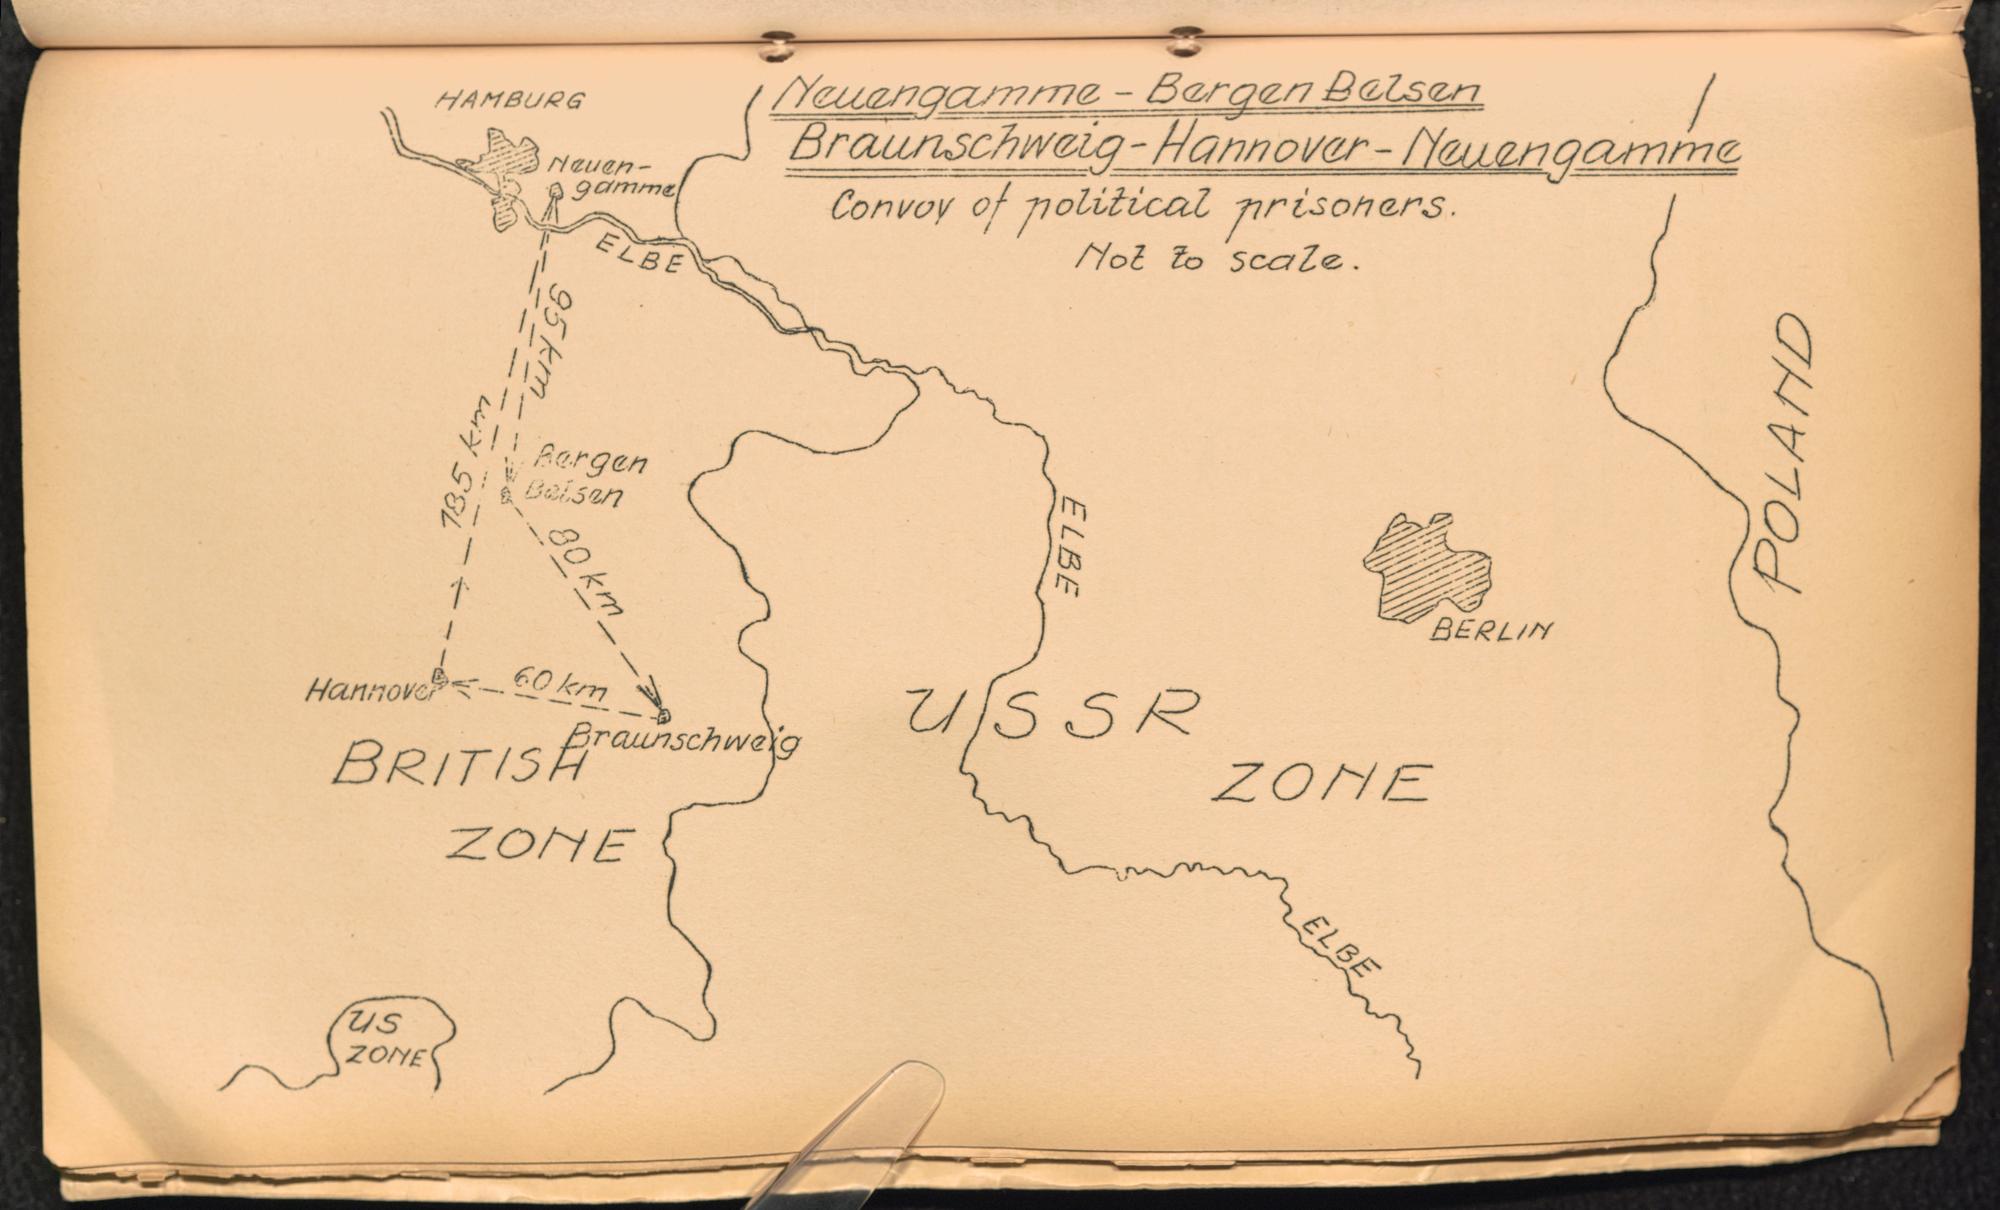 Neuengamme - Bergen Belsen
Braunschweig - Hannover - Neuengamme
Convoy of political prisoners.
Not to scale.
HAMBURG
Neuen-
gamme
ELBE
95 km
185 km
Bergen
Belsen
80 km
Hannover
60 km
Braunschweig
BRITISH
ZONE
US
ZONE
ELBE
USSR
ZONE
BERLIN
POLAND
ELBE